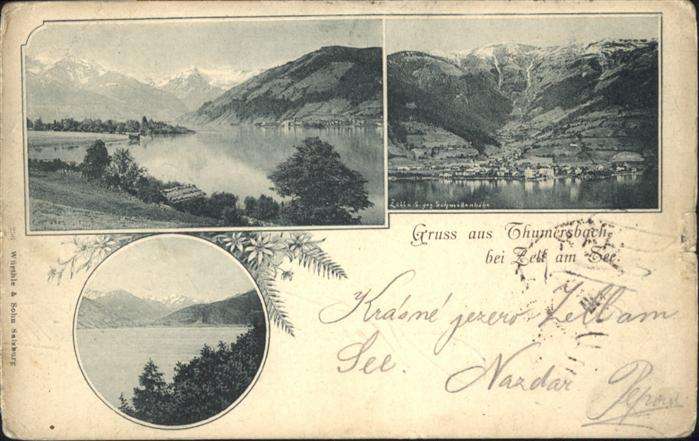 Zell a. S. geg. Schmittenhöhe
Gruss aus Thumersbach
bei Zell am See
Krásné jezero Zell am
See. Nazdar
Würthle & Sohn Salzburg